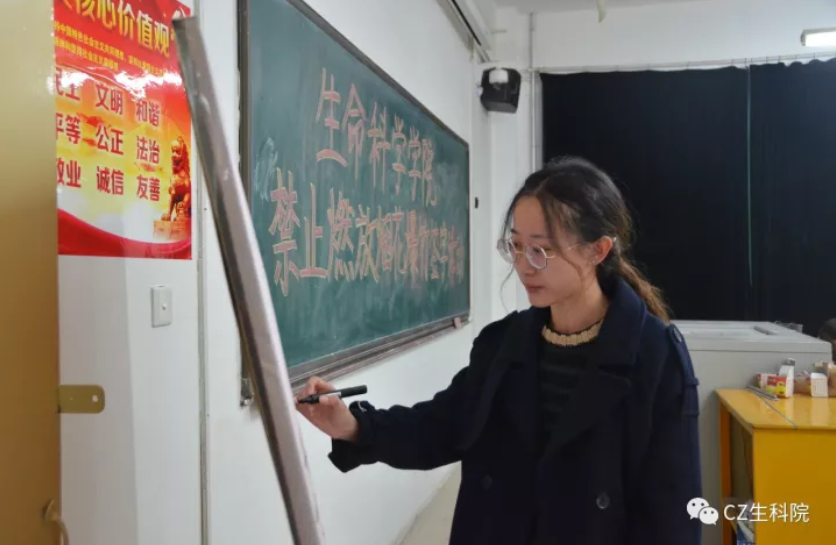 核心价值观
文明 和谐
平等 公正 法治
敬业 诚信 友善
生命科学学院
禁止燃放烟花爆竹签字
CZ生科院